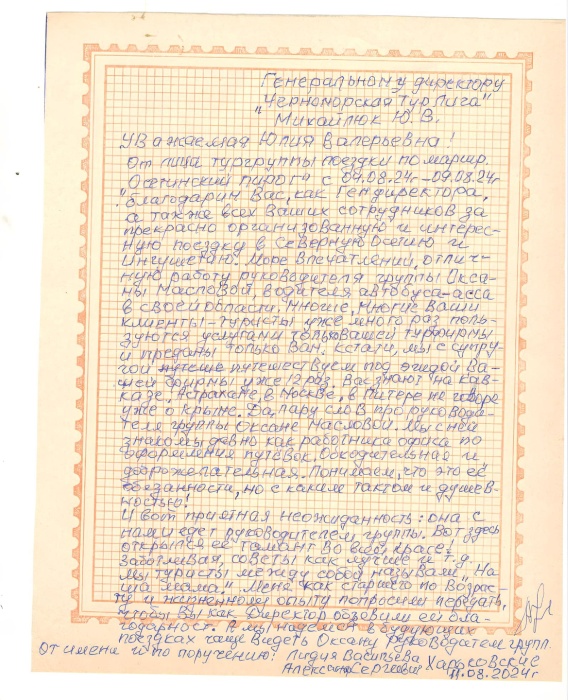 Генеральному директору
"Черноморская Тур Лига"
Михайлюк Ю.В.
Уважаемая Юлия Валерьевна!
От лица тургруппы поездки по маршр.
"Осетинский пирог" с 04.08.24-09.08.24г
благодарим Вас, как Гендиректора,
а также всех Ваших сотрудников за
прекрасно организованную и интерес-
ную поездку в Северную Осетию и
Ингушетию. Море впечатлений, отлич-
ную работу руководителя группы Окса-
ны Масловой, водителя автобуса-асса
в своей области. Многие, многие Ваши
клиенты-туристы уже много раз поль-
зуются услугами только Вашей турфирмы
и преданы только Вам. Кстати, мы с супру-
гой путеше путешествуем под эгидой Ва-
шей фирмы уже 12 раз. Вас знают на Кав-
казе, Астрахане, в Москве, в Питере не говоря
уже о Крыме. Да, пару слов про руководи-
теля группы Оксане Масловой. Мы с ней
знакомы давно как работника офиса по
оформления путёвок. Обходительная и
доброжелательная. Понимаем, что это её
обязанности, но с каким тактом и душев-
ностью!
И вот приятная неожиданность: она с
нами едет руководителем группы. Вот здесь
открылся её талант во всей красе!
Заботливая, советы как лучше и т.д.
Мы туристы между собой называли "На-
ша мама." Меня, как старшего по возрас-
ту и жизненному опыту попросили передать,
чтобы Вы как Директор объявили ей бла-
годарность. А мы надеемся в будующих
поездках чаще видеть Оксану руководителем групп.
От имени и по поручению: Лидия Васильева Харьковские
Александр Сергеевич 11.08.2024г